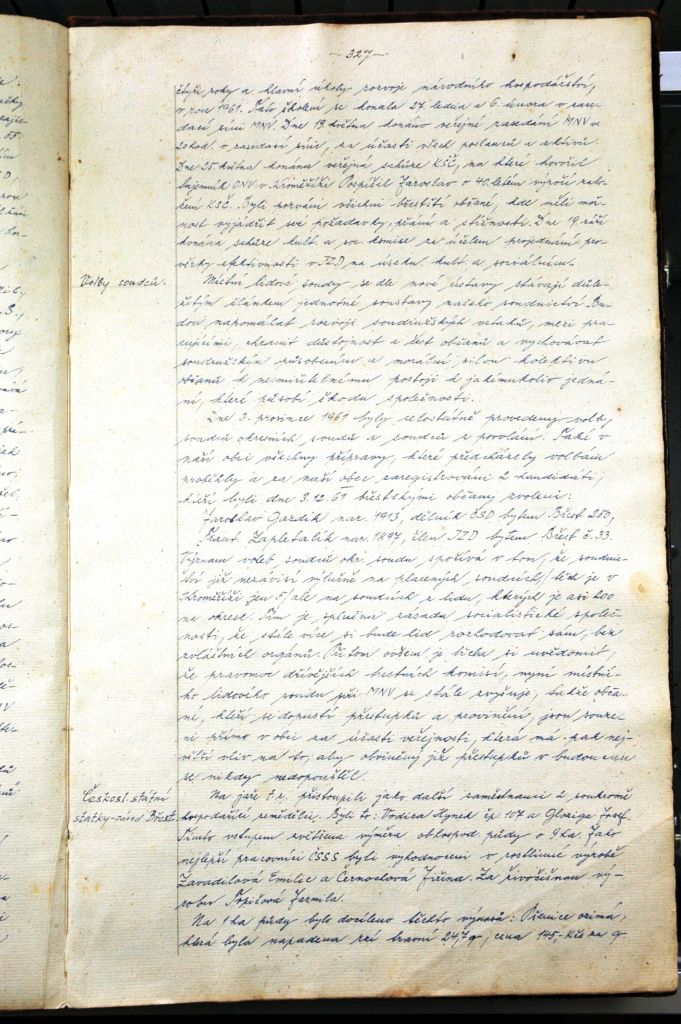 - 327 -
čtyři roky a hlavní úkoly rozvoje národního hospodářství,
v roce 1961. Tato školení se konala 27. ledna a 6. února v zase-
dací síni MNV. Dne 19. května konáno veřejné zasedání MNV v
20 hod. v zasedací síni, za účasti všech poslanců a aktivů.
Dne 25. května konána veřejná schůze KSČ, na které hovořil
tajemník ONV v Kroměříži Pospíšil Jaroslav o 40. letém výročí zalo-
žení KSČ. Byli pozváni všichni břestští občané, kde měli mož-
nost vyjádřit své požadavky, přání a stížnosti. Dne 19. září
konána schůze kult. a soc. komise za účelem projednání pro-
věrky efektivnosti v JZD na úseku kult. a sociálním.
Volby soudců.
Místní lidové soudy se dle nové ústavy stávají důle-
žitým článkem jednotné soustavy našeho soudnictví. Bu-
dou napomáhat rozvoji soudružských vztahů, mezi pra-
cujícími, chránit důstojnost a čest občanů a vychovávat
soudružským působením a morální silou kolektivu
občanů k nesmiřitelnému postoji k jakémukoliv jedná-
ní, které působí škodu společnosti.
Dne 3. prosince 1961 byly celostátně provedeny volby
soudců okresních soudů a soudců z povolání. Také v
naší obci všechny přípravy, které předcházely volbám
proběhly a za naši obec zaregistrováni 2 kandidáti,
kteří byli dne 3.12.61 břestskými občany zvoleni:
Jaroslav Gazdík nar. 1913, dělník ČSD bytem Břest 253,
Frant. Zapletalík nar. 1897, člen JZD bytem Břest č. 33.
Význam voleb soudců okr. soudu spočívá v tom, že soudnic-
tví již nezávisí výlučně na placených soudcích/ těch je v
Kroměříži jen 5/ ale na soudcích z lidu, kterých je asi 200
na okrese. Tím je splněna zásada socialistické společ-
nosti, že stále více si bude lid rozhodovat sám, bez
zvláštních orgánů. Při tom ovšem je třeba si uvědomit,
že pravomoc dřívějších trestních komisí, nyní místní-
ho lidového soudu při MNV se stále zvyšuje, takže obča-
né, kteří se dopustí přestupků a provinění, jsou souze-
ni přímo v obci za účasti veřejnosti, která má pak nej-
větší vliv na to, aby obviněný již přestupků v budoucnu
se nikdy nedopouštěl.
Českosl. státní
statky-závod Břest.
Na jaře t.r. přistoupili jako další zaměstnanci 2 soukromě
hospodařící zemědělci. Byli to: Vodica Hynek čp. 107 a Gloziga Josef.
Tímto vstupem zvětšena výměra obhospod. půdy o 9 ha. Jako
nejlepší pracovníci ČSSS byli vyhodnoceni v rostlinné výrobě
Zavadilová Emilie a Černochová Jiřina. Za živočišnou vý-
robu Jarmila.
Na 1 ha půdy bylo docíleno těchto výnosů: Pšenice ozimá,
která byla napadena rzí travní 24,7 q, cena 145,- Kčs za q.